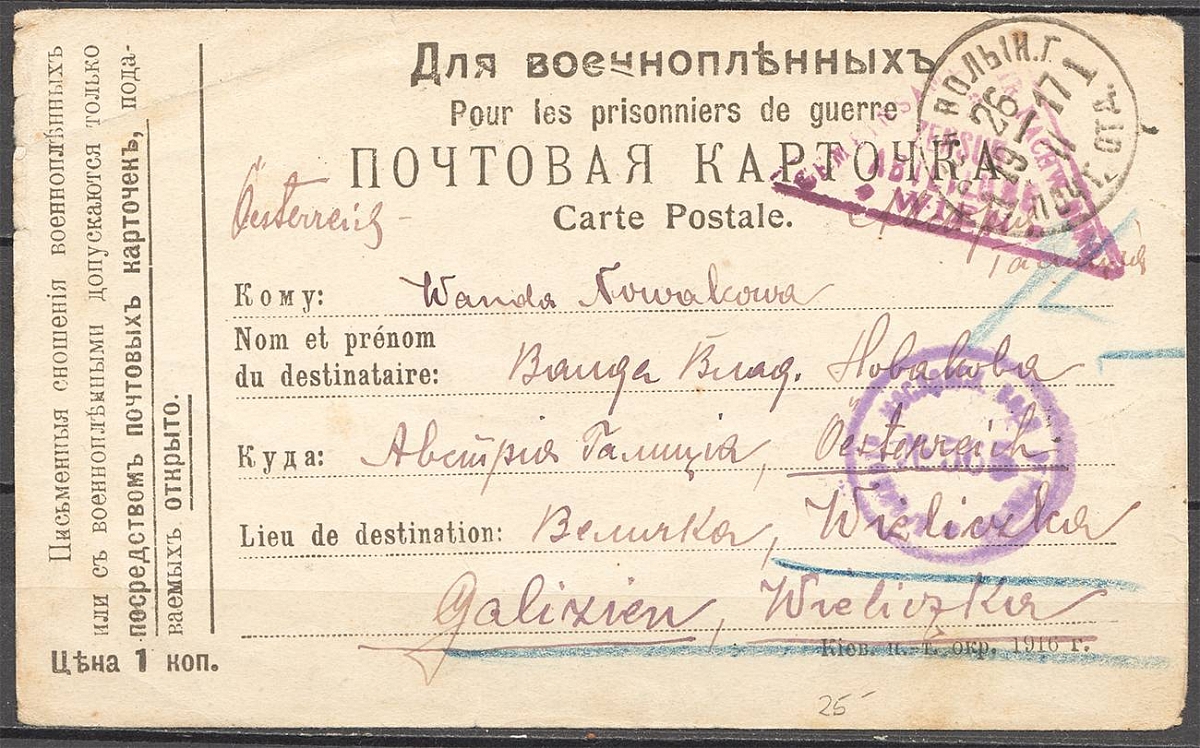 Письменныя сношенія военноплѣнныхъ
или съ военноплѣнными допускаются только
посредствомъ почтовыхъ карточекъ, пода-
ваемыхъ открыто.
Цѣна 1 коп.
Для военноплѣнныхъ
Pour les prisonniers de guerre
ПОЧТОВАЯ КАРТОЧКА
Carte Postale.
Österreich
Кому: Wanda Nowakowa
Nom et prénom
du destinataire: Ванда Влад. Новакова
Куда: Австрія Галиція, Oesterreich
Lieu de destination: Величка, Wieliczka
Galizien, Wieliczka
Кіев. п.-т. окр. 1916 г.
25
ВОЛЫН. Г.
26 1 17
ZENSUR
WIEN